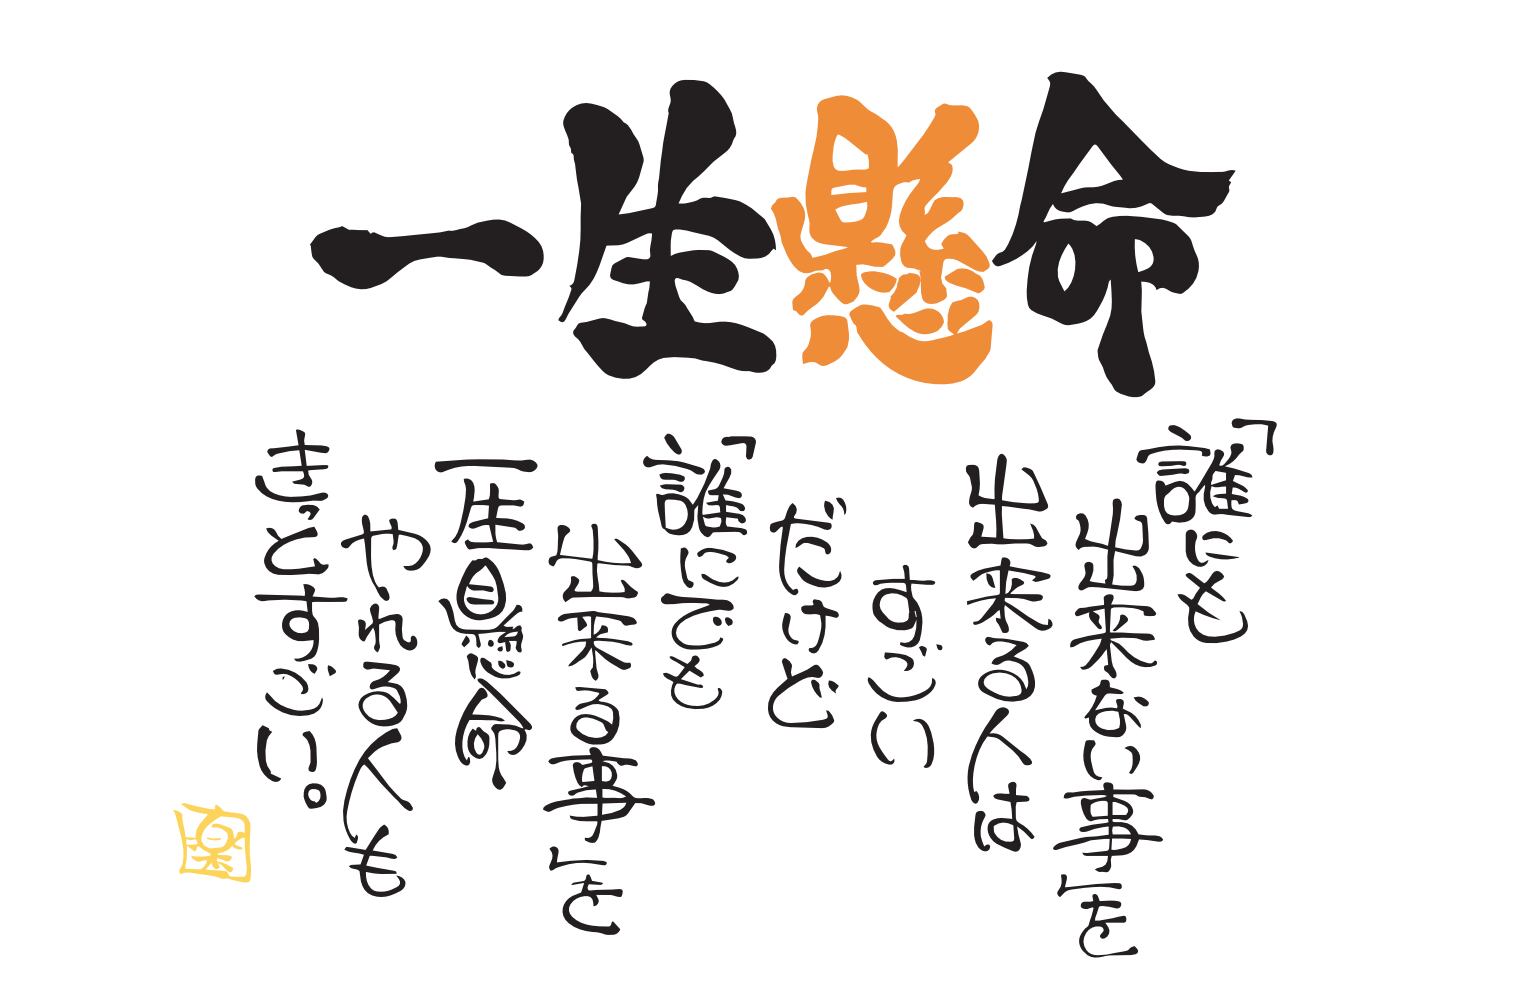 一生懸命
「誰にも
出来ない事」を
出来る人は
すごい
だけど
「誰にでも
出来る事」を
一生懸命
やれる人も
きっとすごい。
楽